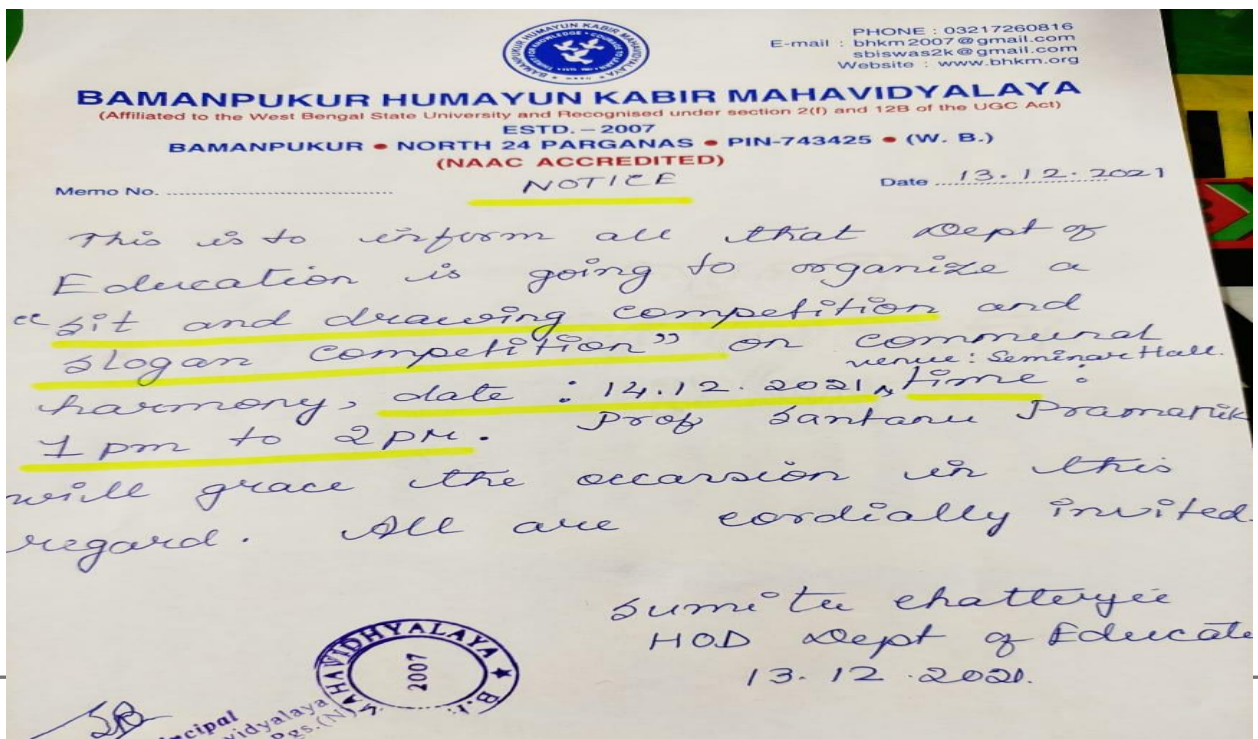 BAMANPUKUR HUMAYUN KABIR MAHAVIDYALAYA
PHONE : 03217260816
E-mail : bhkm2007@gmail.com
sbiswas2k@gmail.com
Website : www.bhkm.org
BAMANPUKUR HUMAYUN KABIR MAHAVIDYALAYA
(Affiliated to the West Bengal State University and Recognised under section 2(f) and 12B of the UGC Act)
ESTD. – 2007
BAMANPUKUR • NORTH 24 PARGANAS • PIN-743425 • (W. B.)
(NAAC ACCREDITED)
Memo No. ................................................ NOTICE Date 13.12.2021
This is to inform all that Dept of
Education is going to organize a
"sit and drawing competition and
slogan competition" on communal
venue: Seminar Hall.
harmony, date : 14.12.2021, time :
1 pm to 2 pm. Prof Santanu Pramanik
will grace the occarsion in this
regard. All are cordially invited
Sumita Chatterjee
HOD Dept of Educate
13.12.2021.
MAHAVIDHYALAYA ★
2007